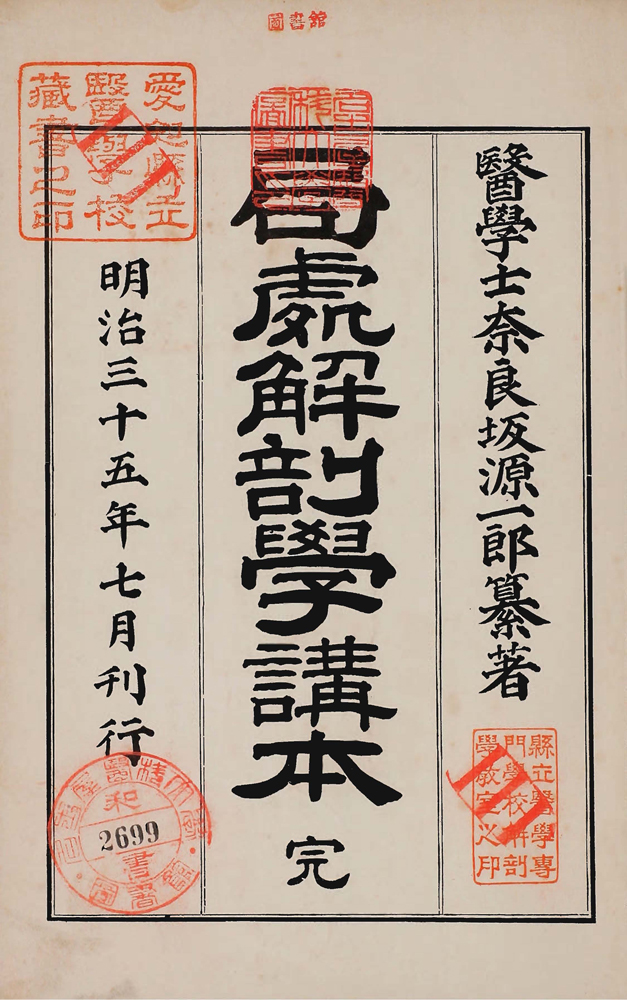 圖書館
醫學士奈良坂源一郎纂著
局處解剖學講本 完
明治三十五年七月刊行
愛知縣立
醫學校
藏書之印
縣立醫學專
門學校解剖
學教室之印
和
2699